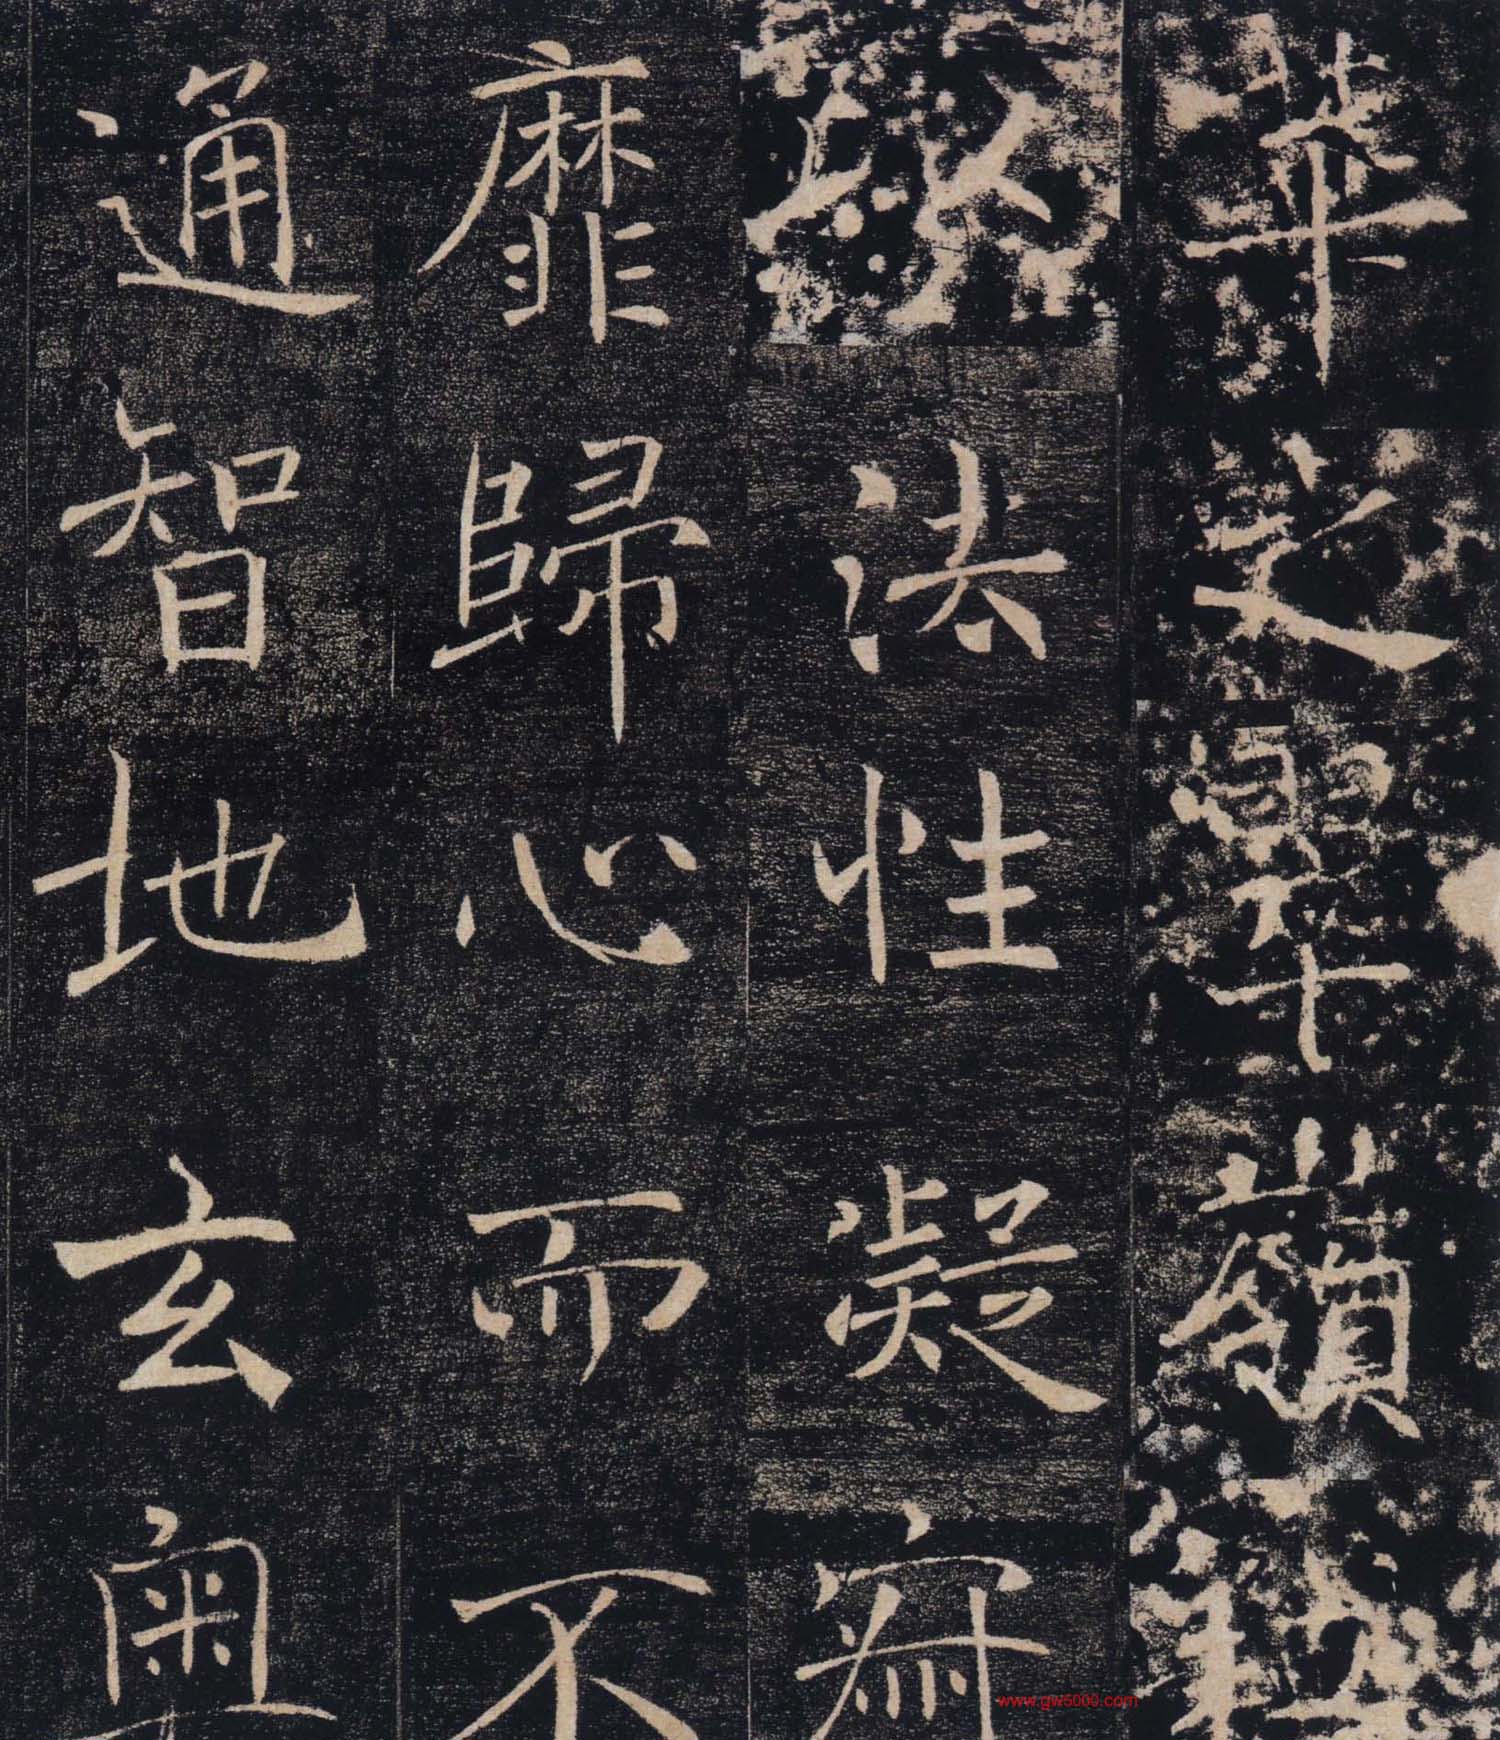 華之翠嶺竊
以法性凝寂
靡歸心而不
通智地玄奥
www.gw5000.com